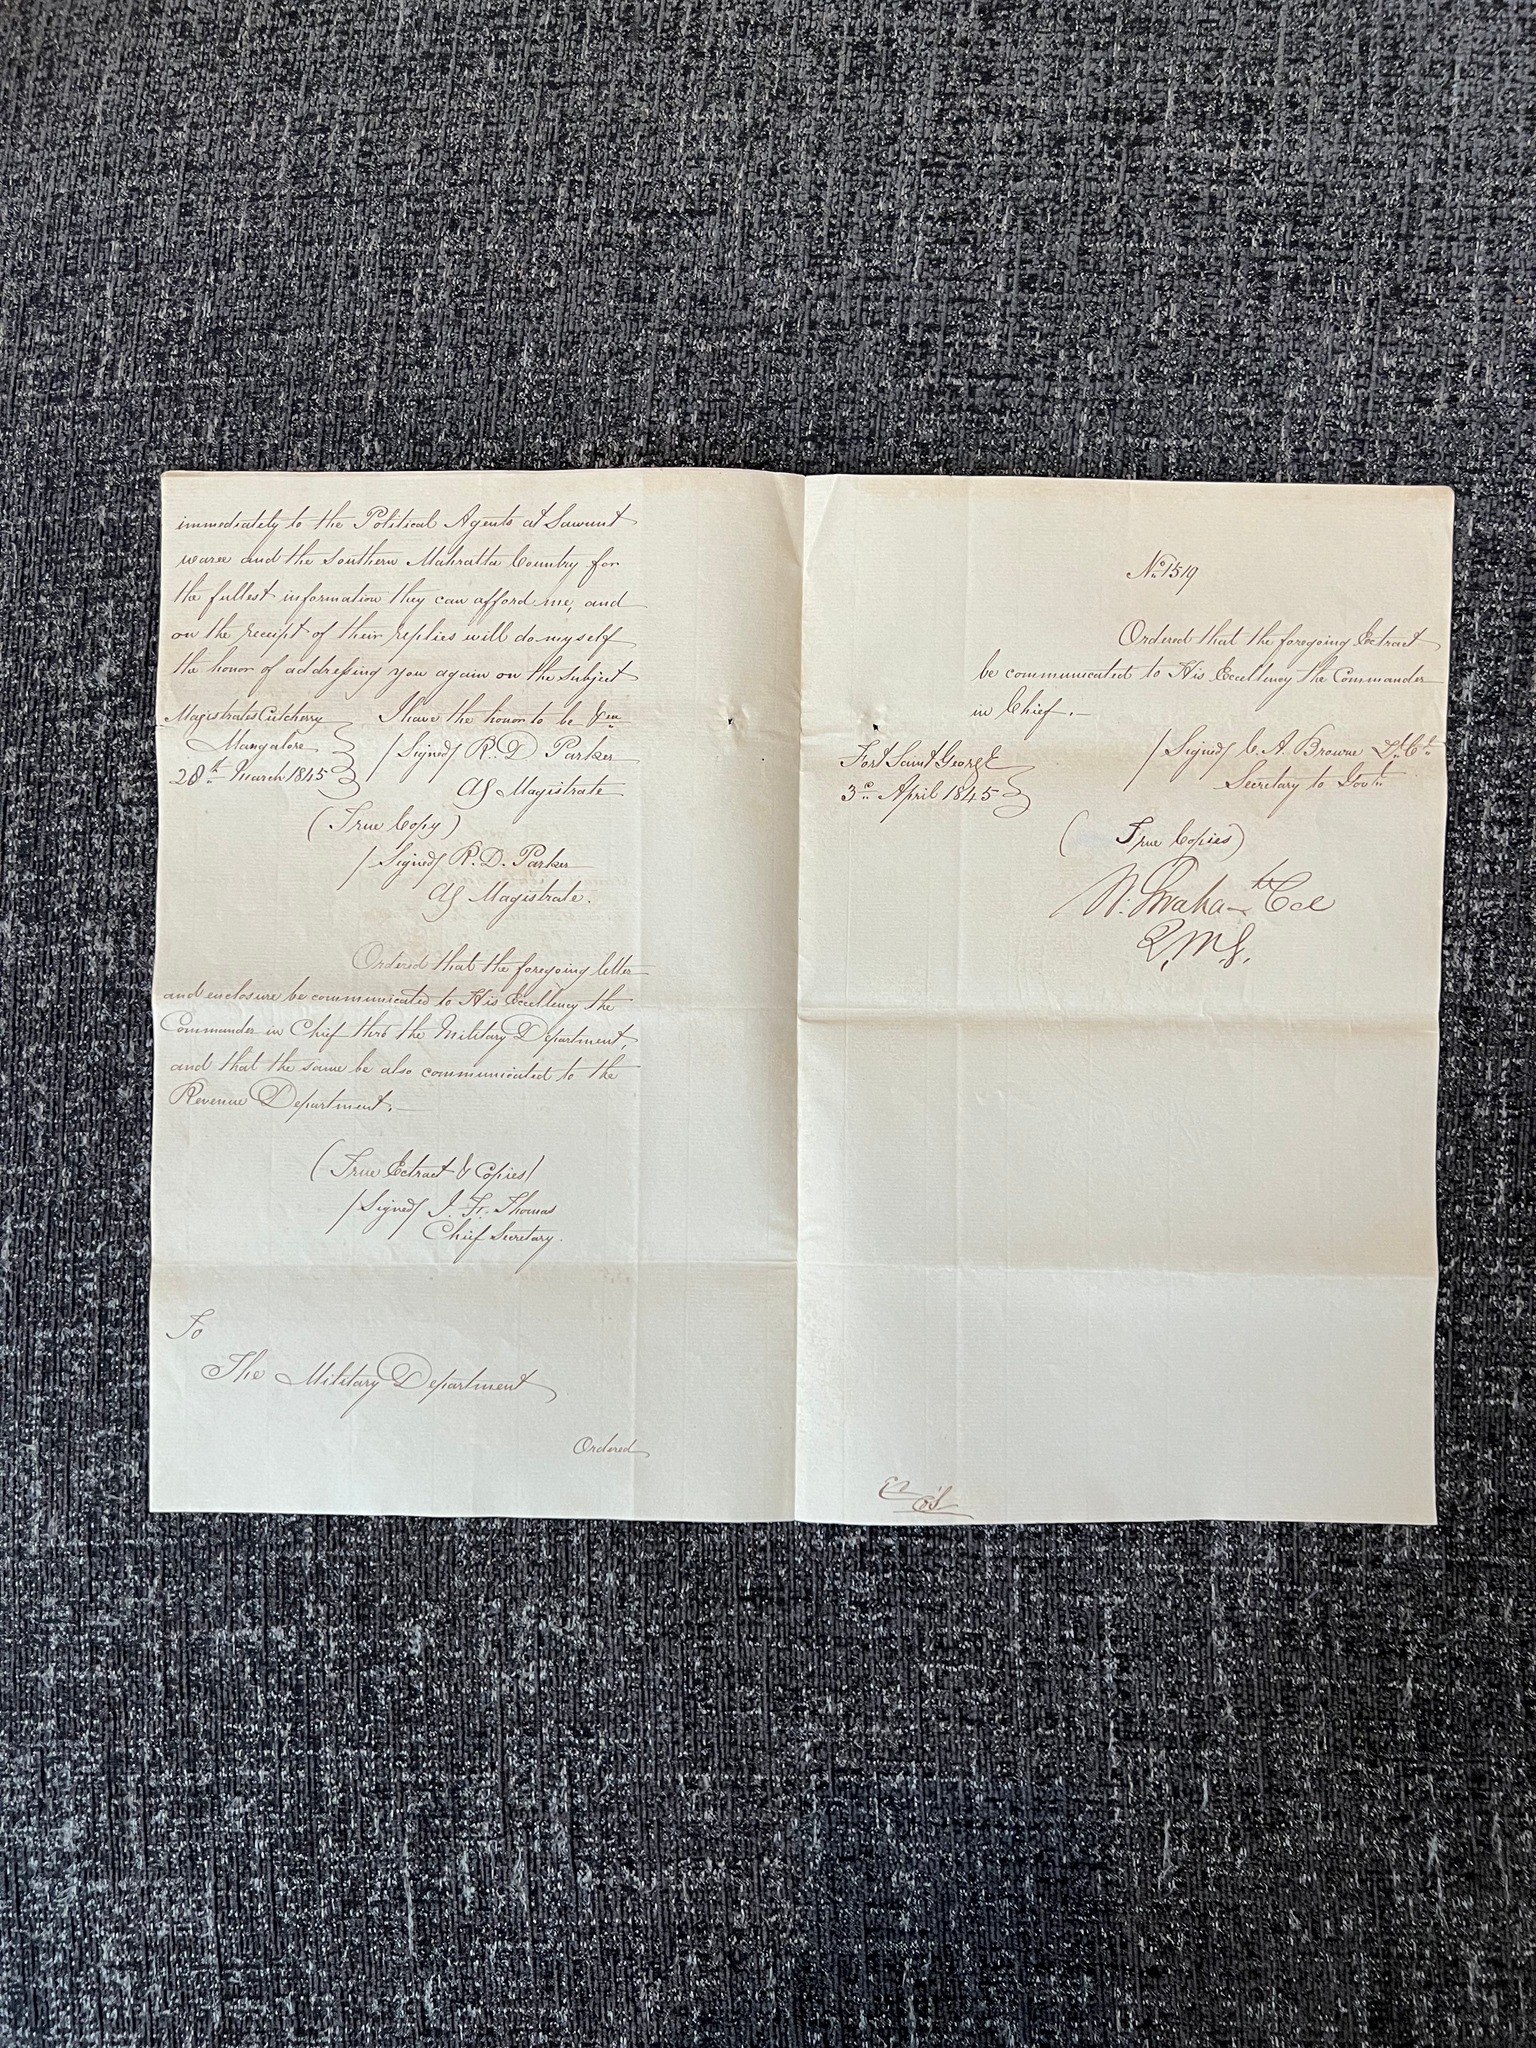 immediately to the Political Agents at Sawunt
waree and the Southern Mahratta Country for
the fullest information they can afford me, and
on the receipt of their replies will do myself
the honor of addressing you again on the subject
Magistrates Cutcherry I have the honor to be &ca
Mangalore /Signed/ R. D Parker
28th March 1845 Ag Magistrate
(True Copy)
/Signed/ R. D. Parker
Ag Magistrate.
Ordered that the foregoing letter
and enclosure be communicated to His Excellency the
Commander in Chief thro the Military Department,
and that the same be also communicated to the
Revenue Department.—
(True Extract & Copies)
/Signed/ J. F. Thomas
Chief Secretary.
To
The Military Department
Ordered
No. 1519
Ordered that the foregoing Extract
be communicated to His Excellency the Commander
in Chief.—
Fort Saint George /Signed/ C. A. Browne Lt. Cl.
3rd April 1845 Secretary to Govt.
(True Copies)
W. Graham Lt Col
Q.M.G.